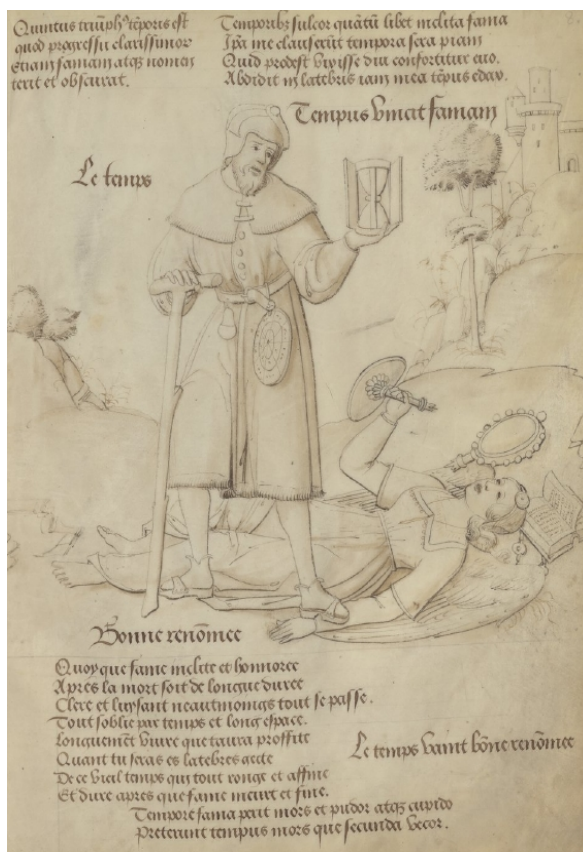 Quintus triūphꝰ tēporis est
quod progressu clarissimor
Etiam famam atqꝫ nomen
terit et obscurat.
Temporibꝫ sulcor quātū libet inclita fama
Ip̄a me clauserūt tempora sera piam
Quid prodest vixisse diu confortiter euo.
Abdidit in latebris iam mea tēpus edax.
Tempus vincit famam
Le temps
Bonne renōmee
Quoy que fame inclite et honnoree
Apres la mort soit de longue duree
Clere et luysant neautmoings tout se passe.
Tout soblie par temps et long espace.
Longuemēt viure que taura proffite
Quant tu seras es latebres gecte
De ce vieil temps qui tout ronge et affine
Et dure apres que fame meurt et fine.
Le temps vaint bōne renōmee
Tempore fama perit mors et pudor atqꝫ cupido
Pretereunt tempus mors que secunda vecor.